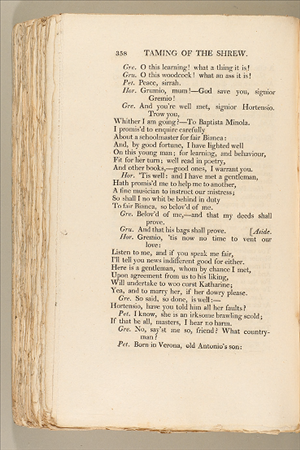 358 TAMING OF THE SHREW.
Gre. O this learning! what a thing it is!
Gru. O this woodcock! what an ass it is!
Pet. Peace, sirrah.
Hor. Grumio, mum!—God save you, signior
Gremio!
Gre. And you're well met, signior Hortensio.
Trow you,
Whither I am going?—To Baptista Minola.
I promis'd to enquire carefully
About a schoolmaster for fair Bianca:
And, by good fortune, I have lighted well
On this young man; for learning, and behaviour,
Fit for her turn; well read in poetry,
And other books,—good ones, I warrant you.
Hor. 'Tis well: and I have met a gentleman,
Hath promis'd me to help me to another,
A fine musician to instruct our mistress;
So shall I no whit be behind in duty
To fair Bianca, so belov'd of me.
Gre. Belov'd of me,—and that my deeds shall
prove.
Gru. And that his bags shall prove. [Aside.
Hor. Gremio, 'tis now no time to vent our
love:
Listen to me, and if you speak me fair,
I'll tell you news indifferent good for either.
Here is a gentleman, whom by chance I met,
Upon agreement from us to his liking,
Will undertake to woo curst Katharine;
Yea, and to marry her, if her dowry please.
Gre. So said, so done, is well:—
Hortensio, have you told him all her faults?
Pet. I know, she is an irksome brawling scold;
If that be all, masters, I hear no harm.
Gre. No, say'st me so, friend? What country-
man?
Pet. Born in Verona, old Antonio's son: